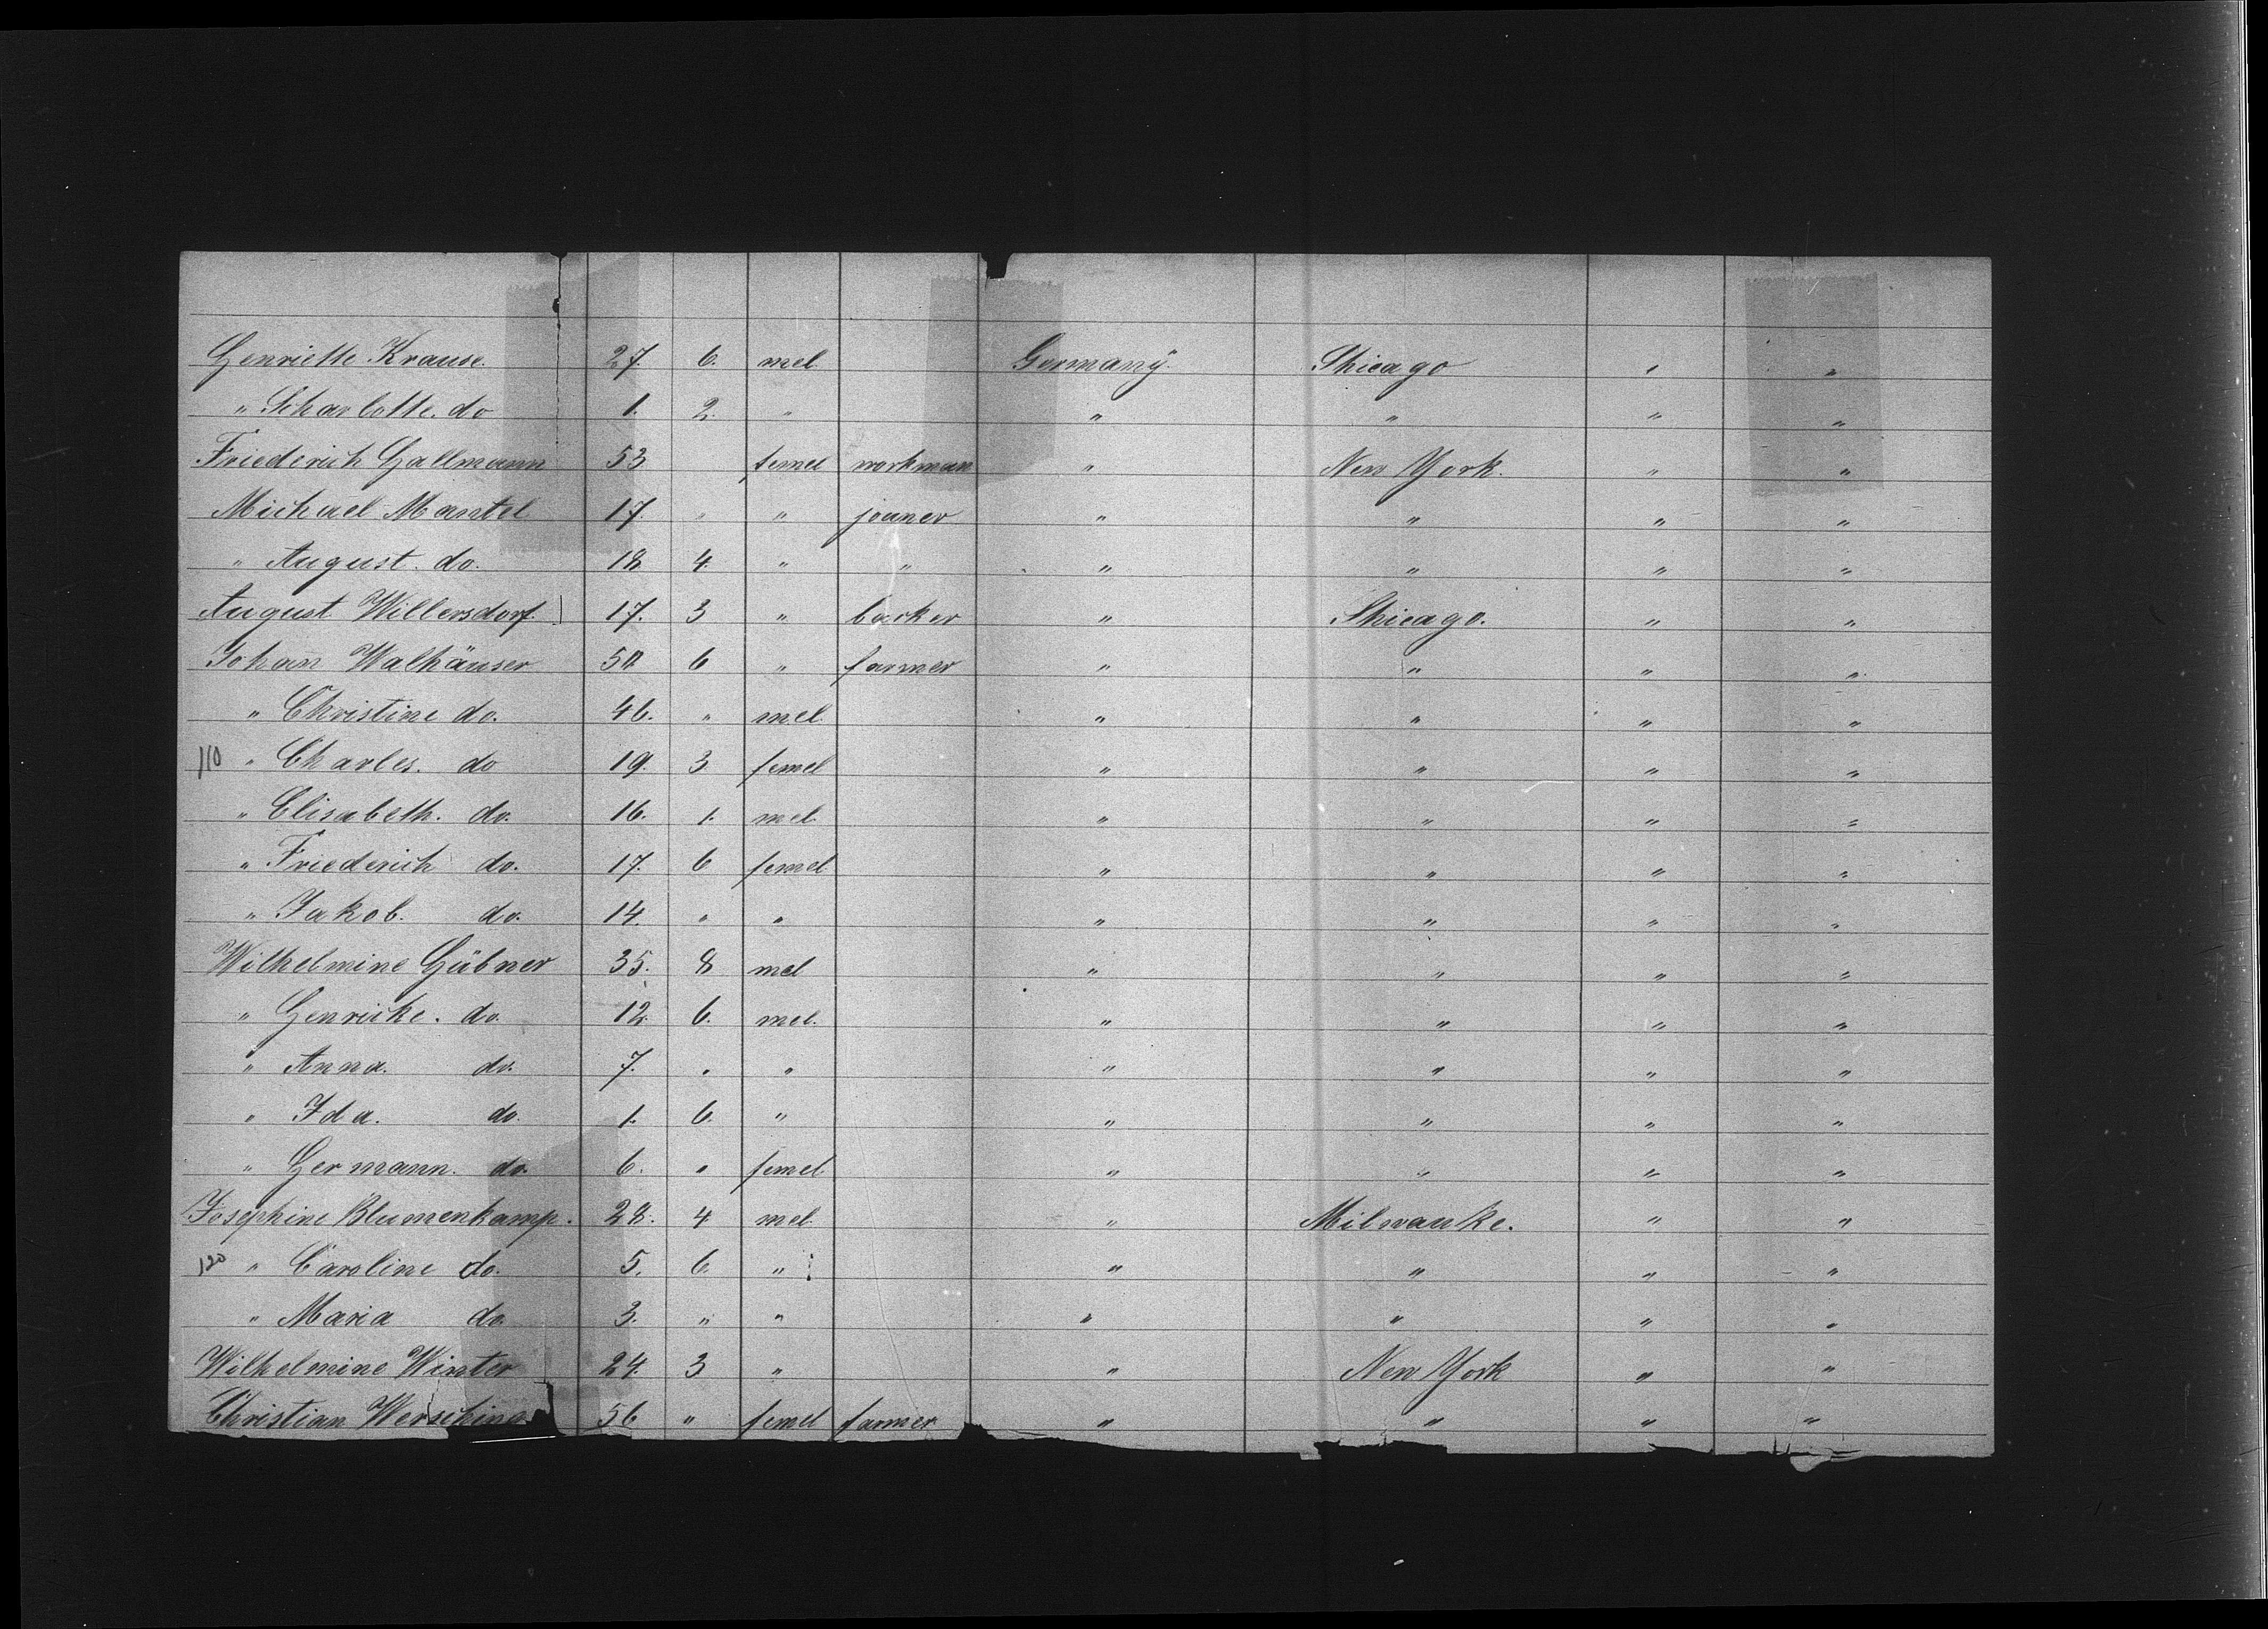 Genriette Krause. 27. 6. mel. Germany. Shicago " "
" Scharlotte. do 1. 2. " " " " "
Friederich Gallmann 53 femel workman " New York. " "
Michael Mantel 17. " " joiner " " " "
" August. do. 18 4. " " " " " "
August Willersdorf. 17. 3 " backer " Shicago. " "
Johan Walhäuser 50 6 " farmer " " " "
" Christine do. 46. " mel. " " " "
110 " Charles. do 19. 3 femel " " " "
" Elisabeth. do. 16. 1. mel " " " "
" Friederich do. 17. 6 femel " " " "
" Jakob. do. 14. " " " " " "
Wilhelmine Gübner 35. 8 mel " " " "
" Genrike. do. 12. 6. mel. " " " "
" Anna. do. 7. " " " " " "
" Ida. do. 1. 6. " " " " "
" Germann. do. 6. " femel " " " "
Josephine Blumenkamp. 28. 4 mel. " Milwauke. " "
120 " Caroline do. 5. 6. " " " " "
" Maria do. 3. " " " " " "
Wilhelmine Winter 24. 3 " " New York " "
Christian 56 " femel farmer " " " "